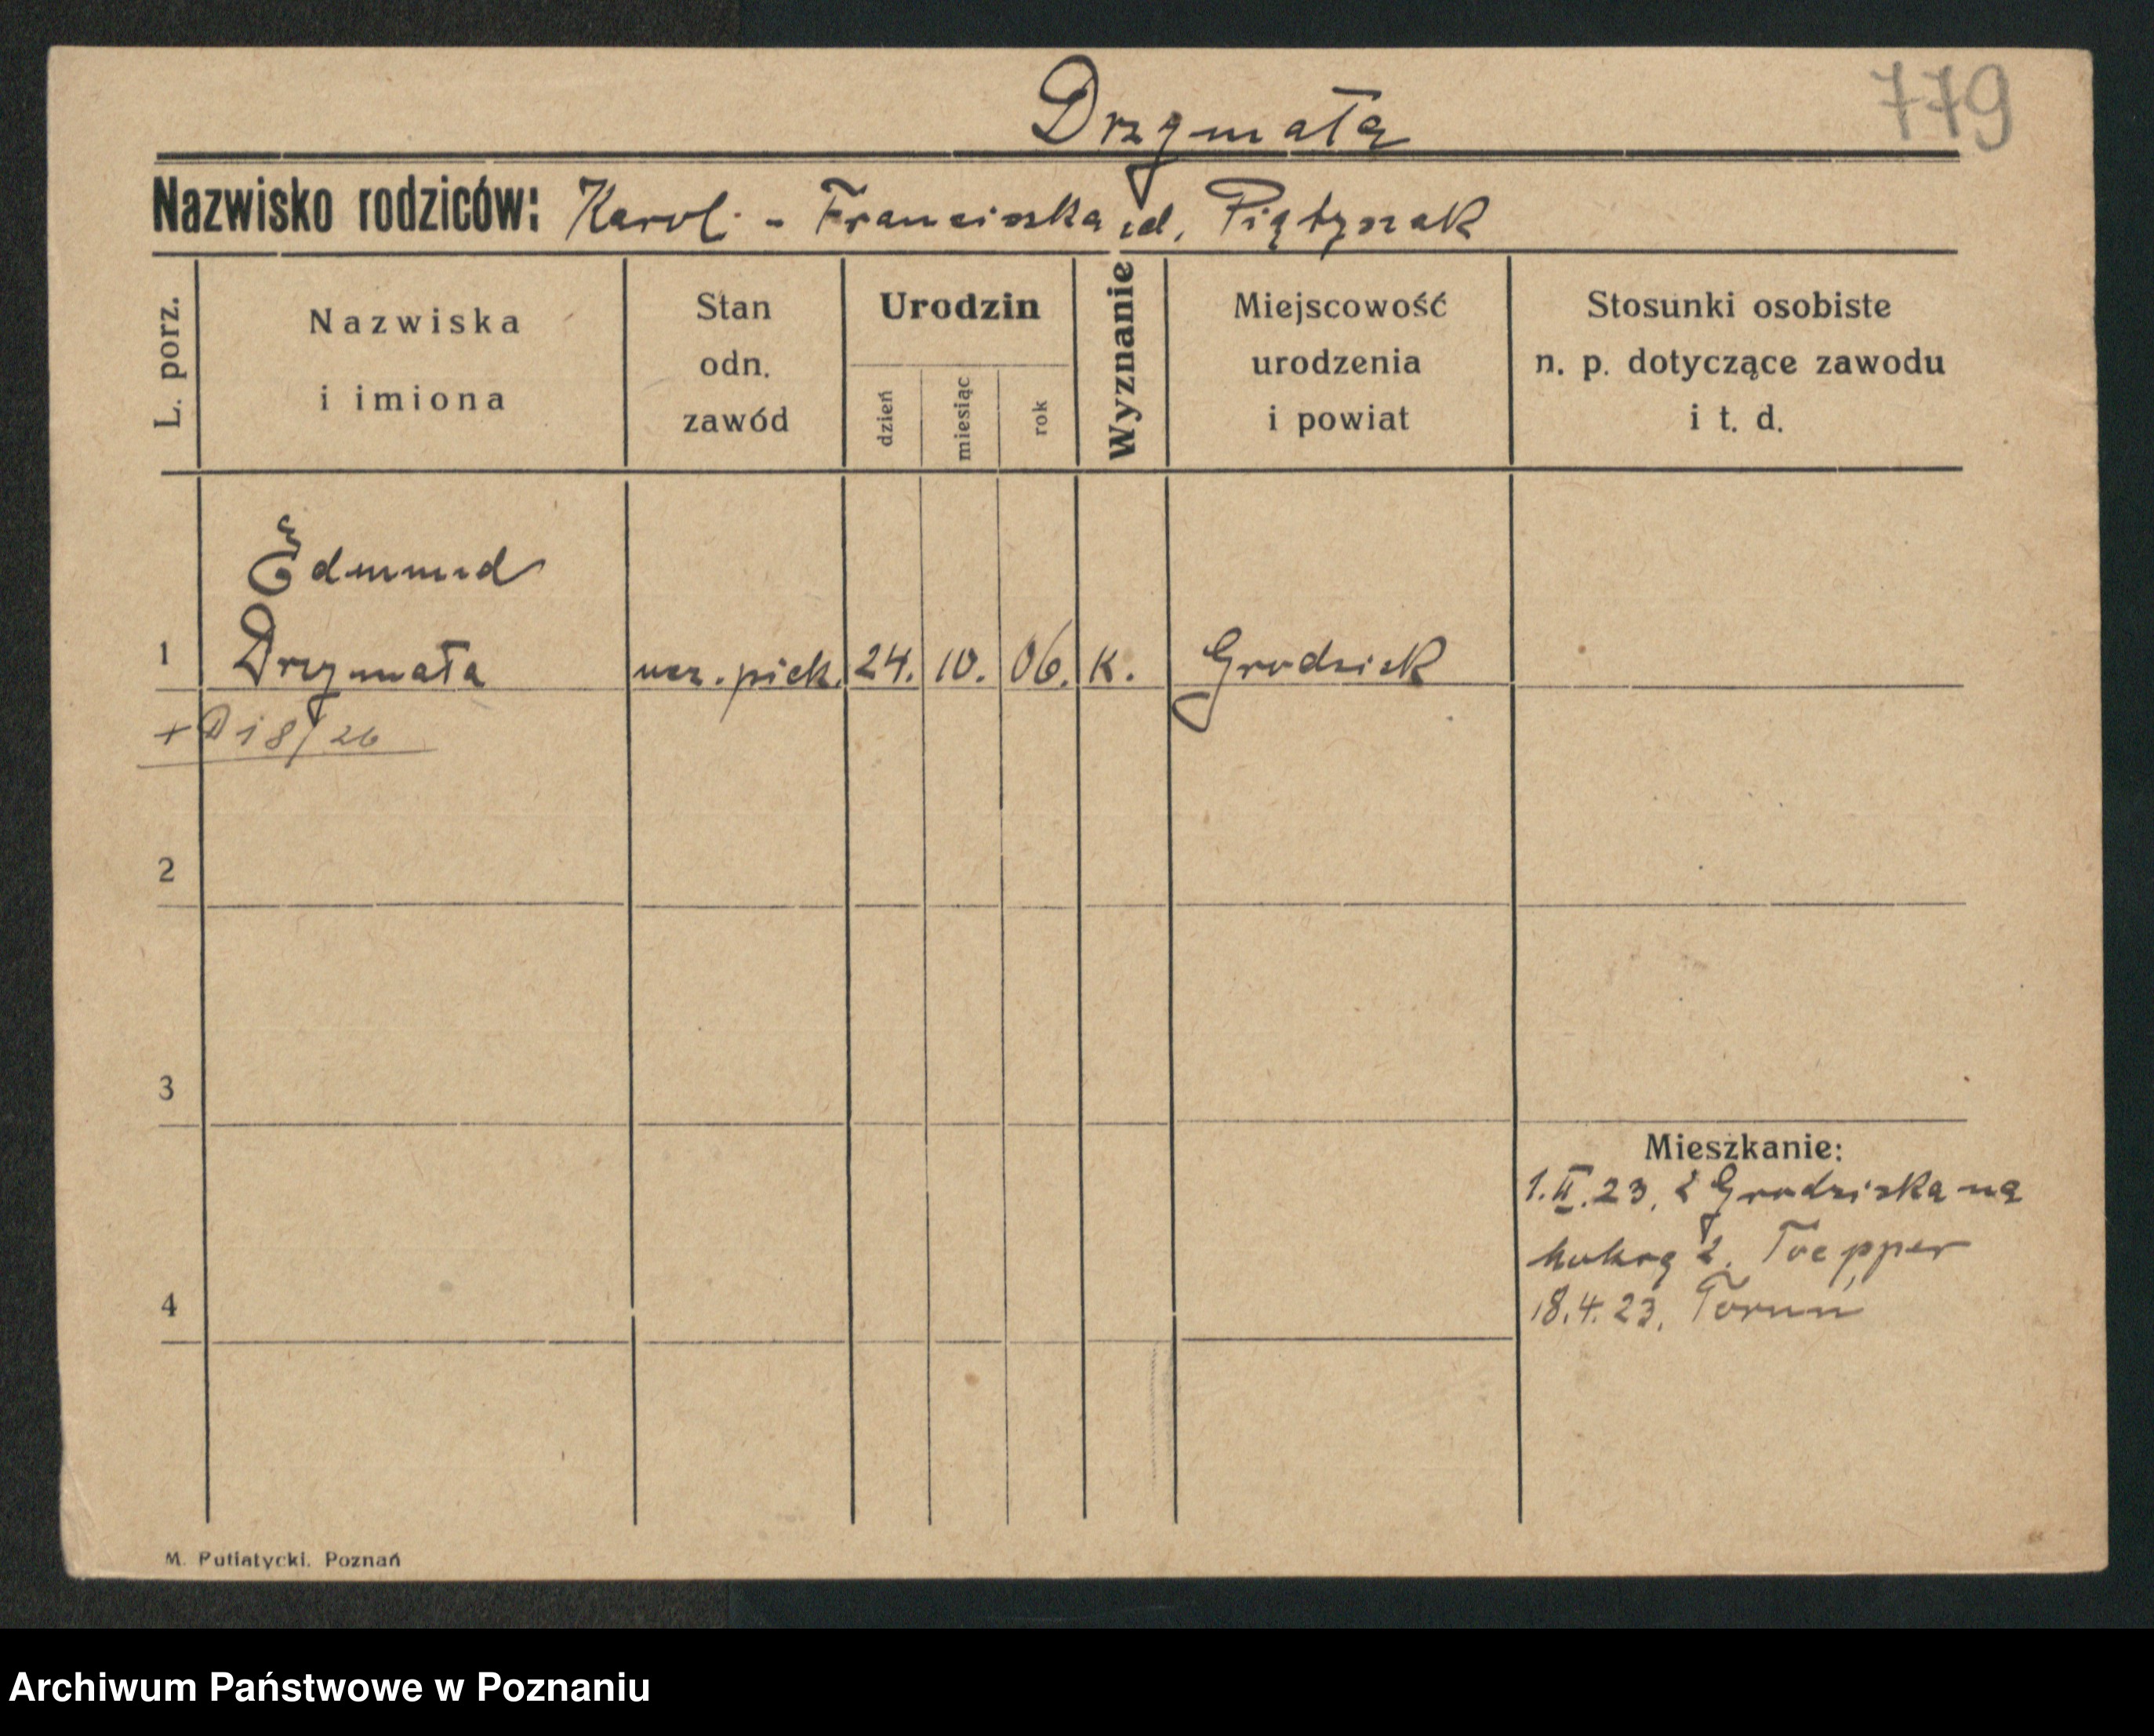 Drzymała
779
Nazwisko rodziców: Karol - Franciszka zd. Piątyszak
L. porz.
Nazwiska
i imiona
Stan
odn.
zawód
Urodzin
dzień
miesiąc
rok
Wyznanie
Miejscowość
urodzenia
i powiat
Stosunki osobiste
n. p. dotyczące zawodu
i t. d.
Edmund
1 Drzymała ucz. piek. 24. 10. 06. K. Grodzisk
+ D 18/26
2
3
Mieszkanie:
1.II.23. z Grodziska na
2. Toepper
4
18.4.23. Toruń
M. Putiatycki. Poznań
Archiwum Państwowe w Poznaniu